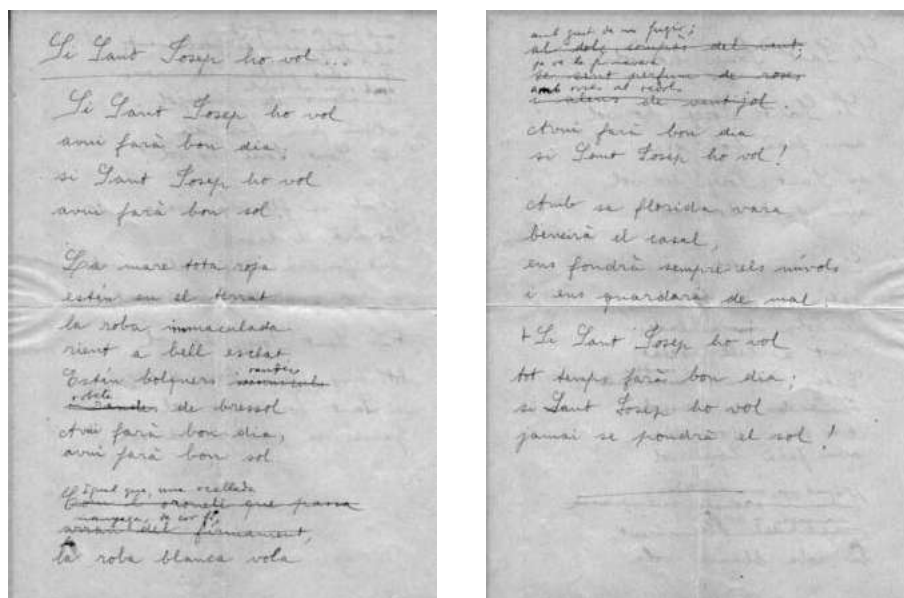 Si Sant Josep ho vol...
Si Sant Josep ho vol
avui farà bon dia;
si Sant Josep ho vol
avui farà bon sol.
La mare tota roja
estén en el terrat
la roba immaculada
rient a bell esclat.
Estén bolquers
de bressol
Avui farà bon dia,
avui farà bon sol.
Igual que una ocellada
Com el oronell que passa
arran del firmament,
la roba blanca vola
amb
al dolç compàs del vent;
se sent perfum de roses
amb
i alens de ventijol.
Avui farà bon dia
si Sant Josep ho vol!
Amb sa florida vara
beneirà el casal,
ens fondrà sempre els núvols
i ens guardarà de mal.
+ Si Sant Josep ho vol
tot temps farà bon dia;
si Sant Josep ho vol
jamai se pondrà el sol!